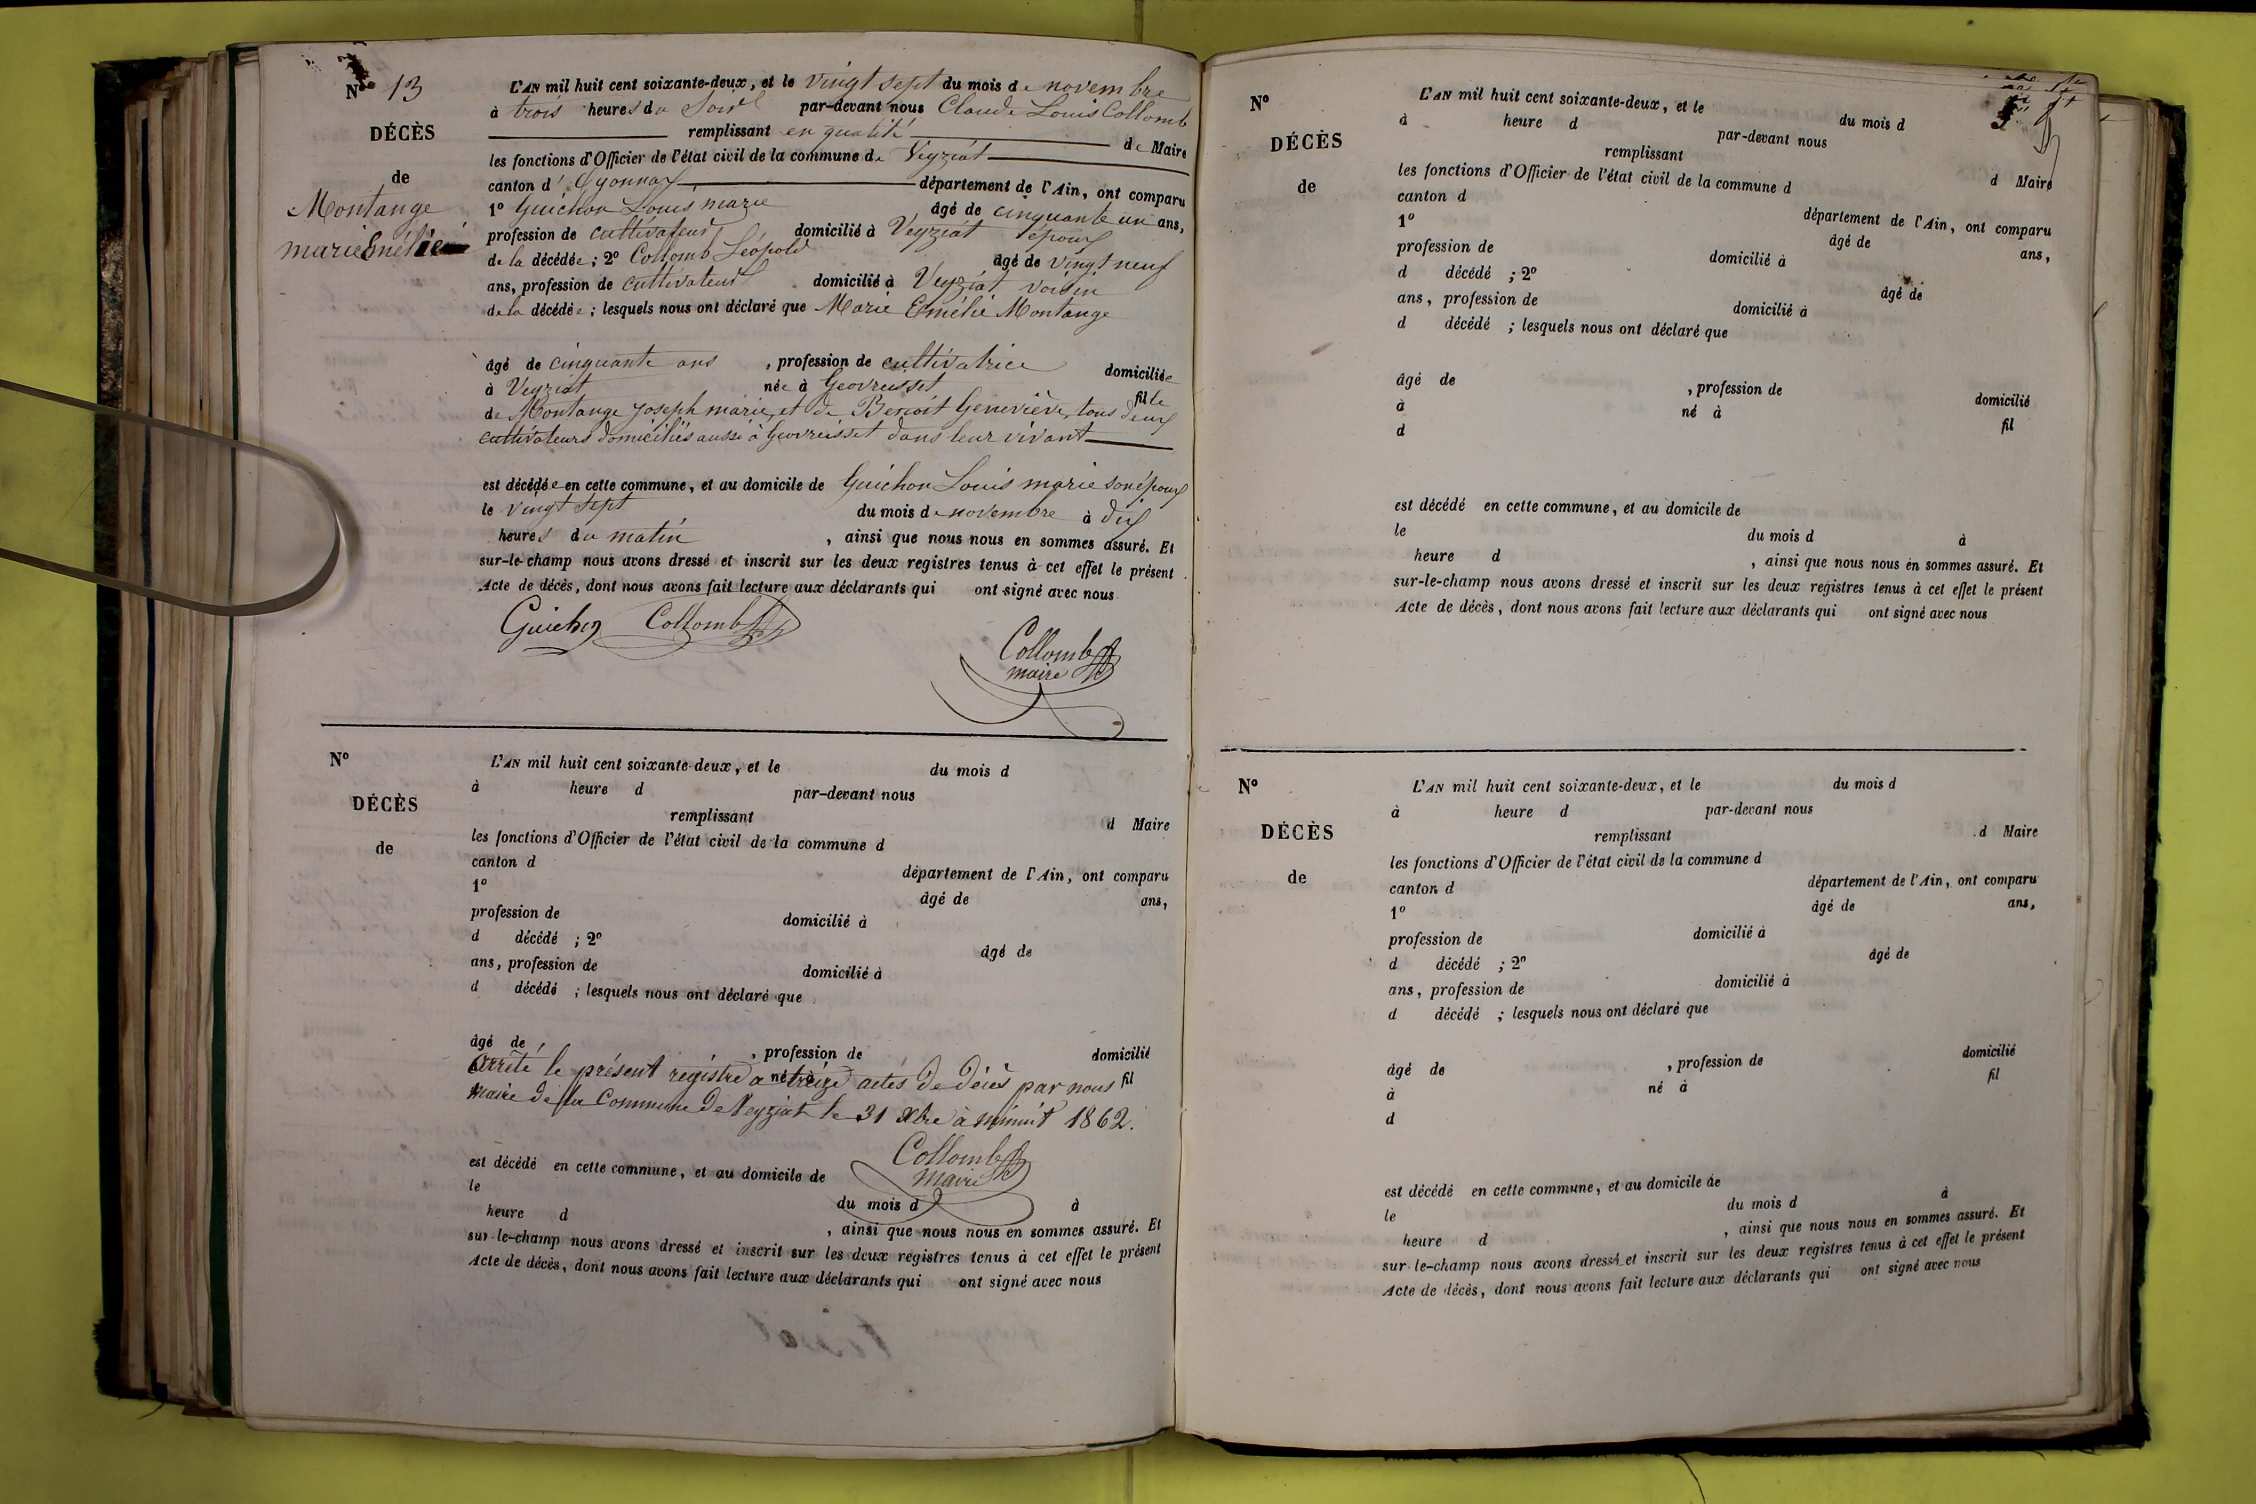 Nº 13
DÉCÈS
de
Montange
marie Emélie
L'AN mil huit cent soixante-deux, et le vingt sept du mois de novembre
à trois heures du Soir par-devant nous Claude Louis Collomb
remplissant en qualité de Maire
les fonctions d'Officier de l'état civil de la commune de Veyziat
canton d'Oyonnax département de l'Ain, ont comparu
1º Guichon Louis marie âgé de cinquante un ans,
profession de cultivateur domicilié à Veyziat époux
de la décédée ; 2º Collomb Léopold âgé de vingt neuf
ans, profession de cultivateur domicilié à Veyziat voisin
de la décédée ; lesquels nous ont déclaré que Marie Emélie Montange
âgé de cinquante ans , profession de cultivatrice domiciliée
à Veyziat née à Geovreisset fille
de Montange Joseph marie, et de Benoît Geneviève, tous deux
cultivateurs domiciliés aussi à Geovreisset dans leur vivant
est décédée en cette commune, et au domicile de Guichon Louis marie son époux
le vingt sept du mois de novembre à dix
heures du matin , ainsi que nous nous en sommes assuré. Et
sur-le-champ nous avons dressé et inscrit sur les deux registres tenus à cet effet le présent
Acte de décès, dont nous avons fait lecture aux déclarants qui ont signé avec nous
Guichon Collomb
Collomb
maire
Nº
DÉCÈS
de
L'AN mil huit cent soixante-deux, et le du mois d
à heure d par-devant nous
remplissant d Maire
les fonctions d'Officier de l'état civil de la commune d
canton d département de l'Ain, ont comparu
1º âgé de ans,
profession de domicilié à
d décédé ; 2º âgé de
ans, profession de domicilié à
d décédé ; lesquels nous ont déclaré que
âgé de , profession de domicilié
né à fil
Arrêté le présent régistre à treize actes de décès par nous
maire de la Commune de Veyziat le 31 Xbre à minuit 1862.
Collomb
maire
est décédé en cette commune, et au domicile de
le du mois d à
heure d , ainsi que nous nous en sommes assuré. Et
sur-le-champ nous avons dressé et inscrit sur les deux registres tenus à cet effet le présent
Acte de décès, dont nous avons fait lecture aux déclarants qui ont signé avec nous
Nº
DÉCÈS
de
L'AN mil huit cent soixante-deux, et le du mois d
à heure d par-devant nous
remplissant d Maire
les fonctions d'Officier de l'état civil de la commune d
canton d département de l'Ain, ont comparu
1º âgé de ans,
profession de domicilié à
d décédé ; 2º âgé de
ans, profession de domicilié à
d décédé ; lesquels nous ont déclaré que
âgé de , profession de domicilié
à né à fil
d
est décédé en cette commune, et au domicile de
le du mois d à
heure d , ainsi que nous nous en sommes assuré. Et
sur-le-champ nous avons dressé et inscrit sur les deux registres tenus à cet effet le présent
Acte de décès, dont nous avons fait lecture aux déclarants qui ont signé avec nous
Nº
DÉCÈS
de
L'AN mil huit cent soixante-deux, et le du mois d
à heure d par-devant nous
remplissant d Maire
les fonctions d'Officier de l'état civil de la commune d
canton d département de l'Ain, ont comparu
1º âgé de ans,
profession de domicilié à
d décédé ; 2º âgé de
ans, profession de domicilié à
d décédé ; lesquels nous ont déclaré que
âgé de , profession de domicilié
à né à fil
d
est décédé en cette commune, et au domicile de
le du mois d à
heure d , ainsi que nous nous en sommes assuré. Et
sur-le-champ nous avons dressé et inscrit sur les deux registres tenus à cet effet le présent
Acte de décès, dont nous avons fait lecture aux déclarants qui ont signé avec nous